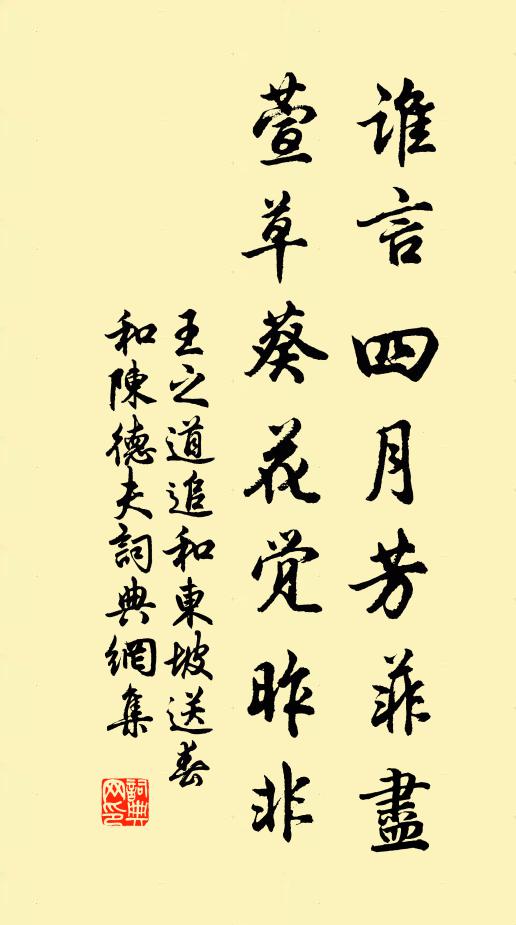 誰言四月芳菲盡
萱草葵花觉昨非
王之道追和東坡送春
和陳德夫詞典網集
詞典网印